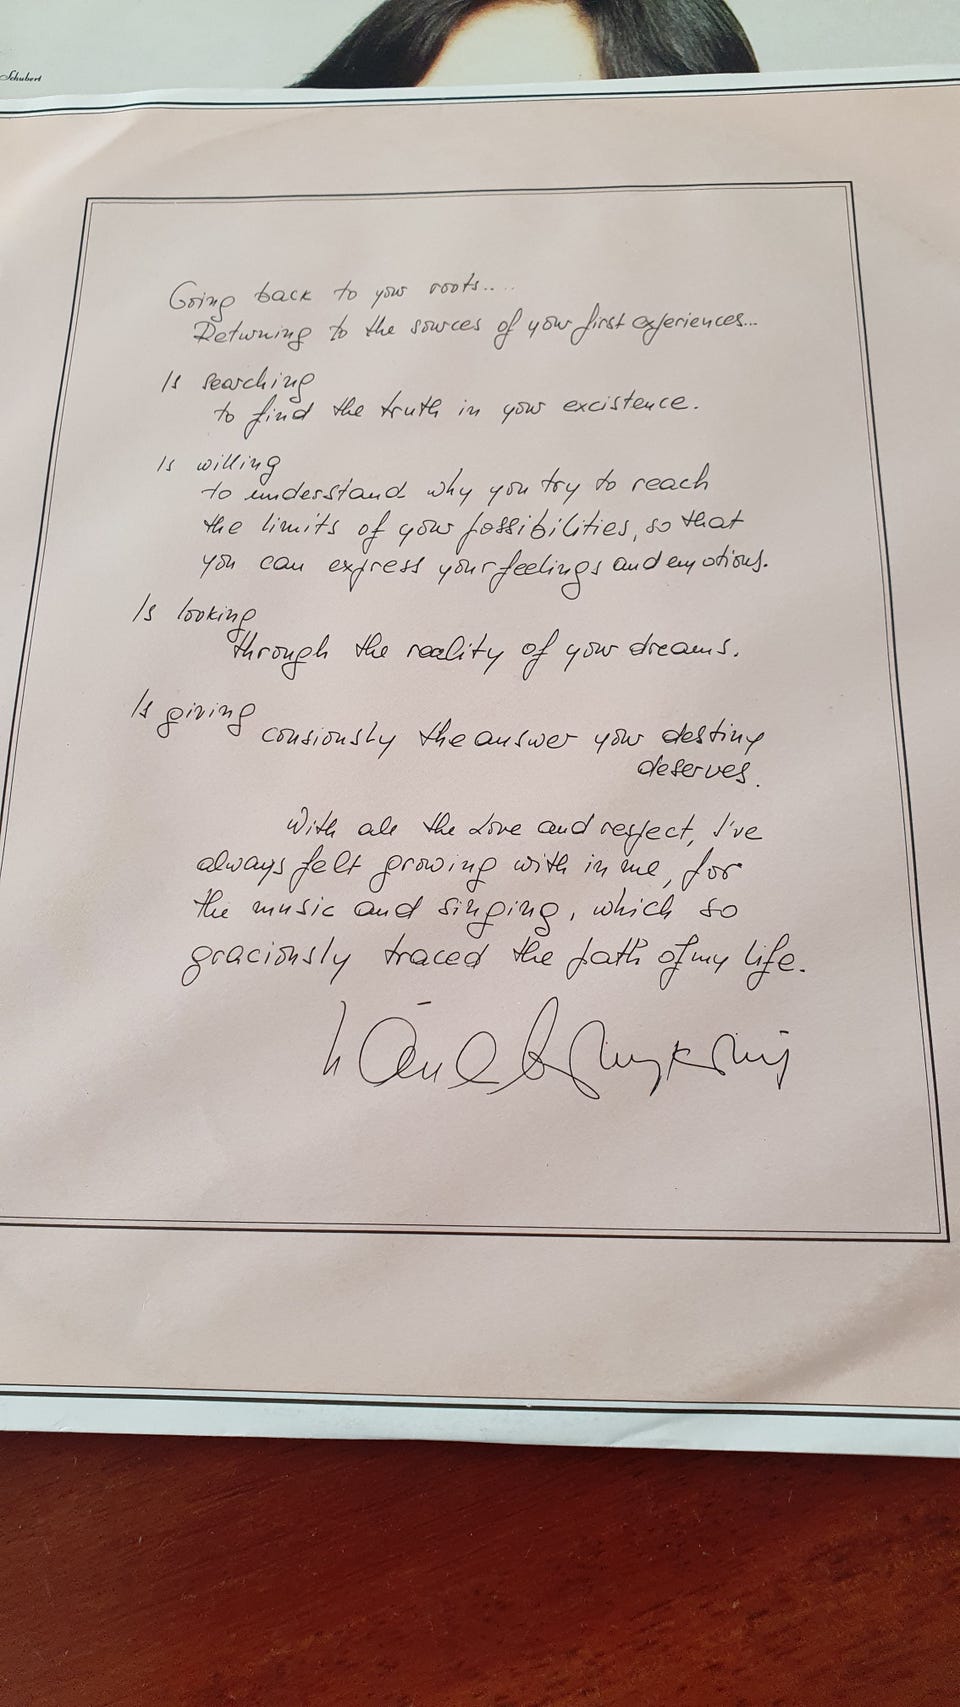 Schubert
Going back to your roots....
Returning to the sources of your first experiences...
Is searching
to find the truth in your excistence.
Is willing
to understand why you try to reach
the limits of your possibilities, so that
you can express your feelings and emotions.
Is looking
through the reality of your dreams.
Is giving
consiously the answer your destiny
deserves.
With all the love and respect, I've
always felt growing with in me, for
the music and singing, which so
graciously traced the path of my life.